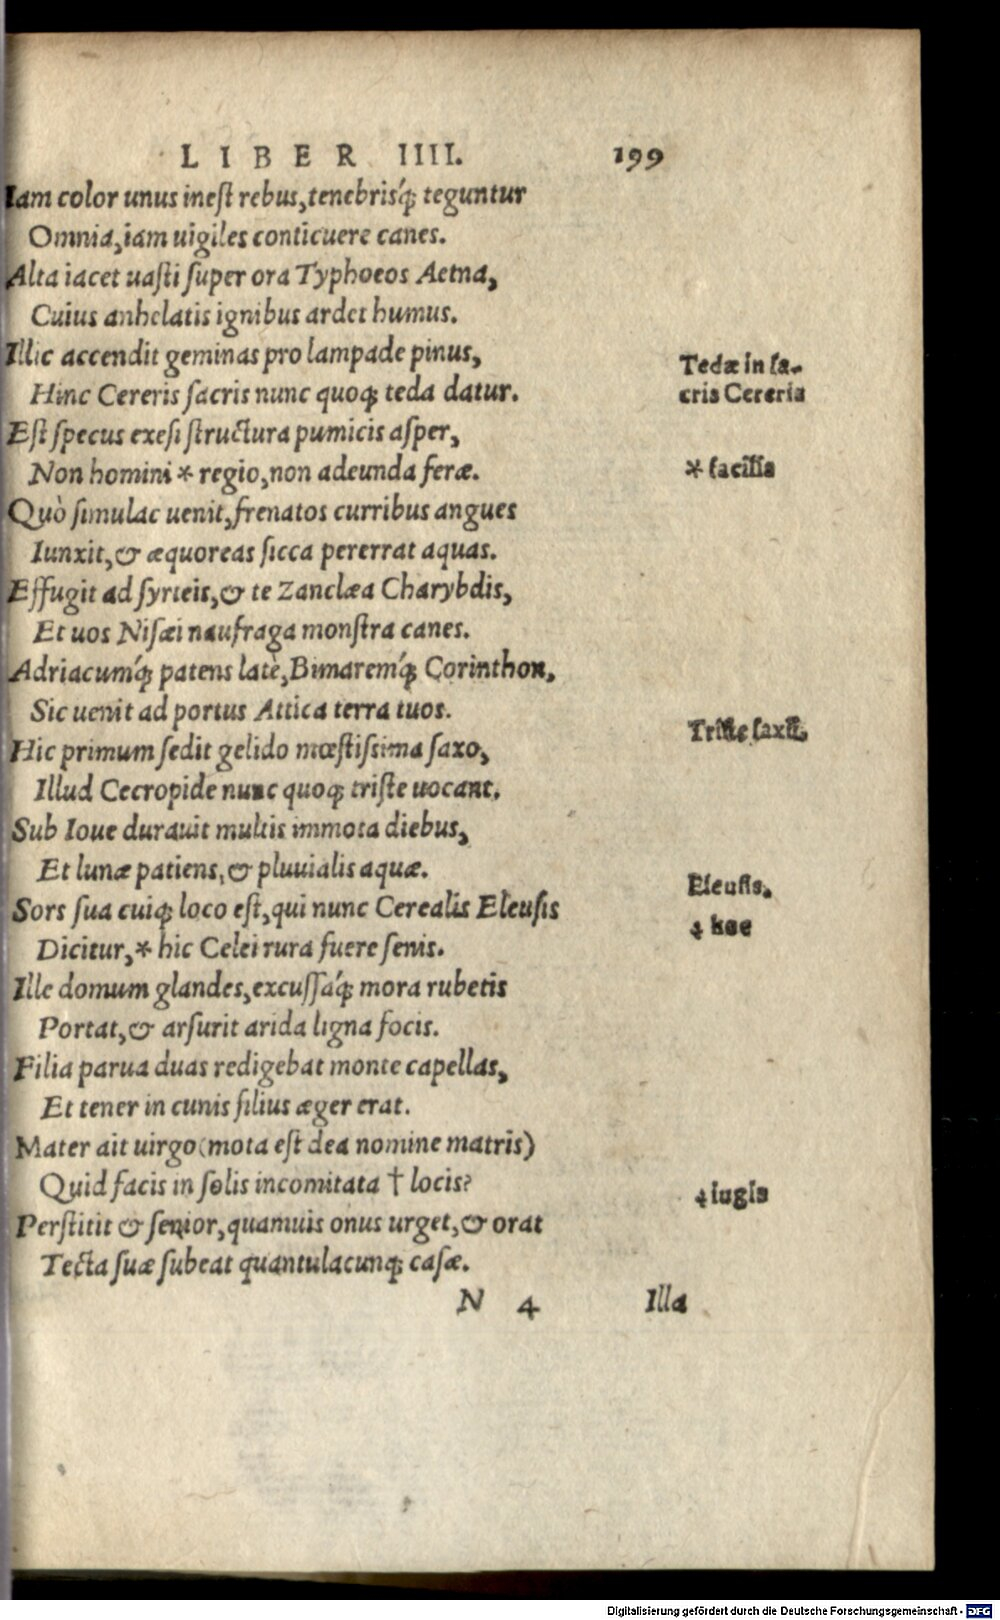 LIBER IIII. 199
Iam color unus inest rebus, tenebrisq́; teguntur
Omnia, iam uigiles conticuere canes.
Alta iacet uasti super ora Typhoeos Aetna,
Cuius anhelatis ignibus ardet humus.
Illic accendit geminas pro lampade pinus,
Tedæ in sa-
Hinc Cereris sacris nunc quoq; teda datur.
cris Cereris
Est specus exesi structura pumicis asper,
Non homini * regio, non adeunda feræ.
* facilis
Quò simulac uenit, frenatos curribus angues
Iunxit, & æquoreas sicca pererrat aquas.
Effugit ad syrteis, & te Zanclæa Charybdis,
Et uos Nisæi naufraga monstra canes.
Adriacumq́; patens latè, Bimaremq́; Corinthon,
Sic uenit ad portus Attica terra tuos.
Hic primum sedit gelido mœstissima saxo,
Triste saxũ.
Illud Cecropide nunc quoq; triste uocant.
Sub Ioue durauit multis immota diebus,
Et lunæ patiens, & pluuialis aquæ.
Eleusis.
Sors sua cuiq; loco est, qui nunc Cerealis Eleusis
Dicitur, * hic Celei rura fuere senis.
hoc
Ille domum glandes, excussaq́; mora rubetis
Portat, & arsurit arida ligna focis.
Filia parua duas redigebat monte capellas,
Et tener in cunis filius æger erat.
Mater ait uirgo (mota est dea nomine matris)
Quid facis in solis incomitata † locis?
iugis
Perstitit & senior, quamuis onus urget, & orat
Tecta suæ subeat quantulacunq; casæ.
N 4 Illa
Digitalisierung gefördert durch die Deutsche Forschungsgemeinschaft - DFG